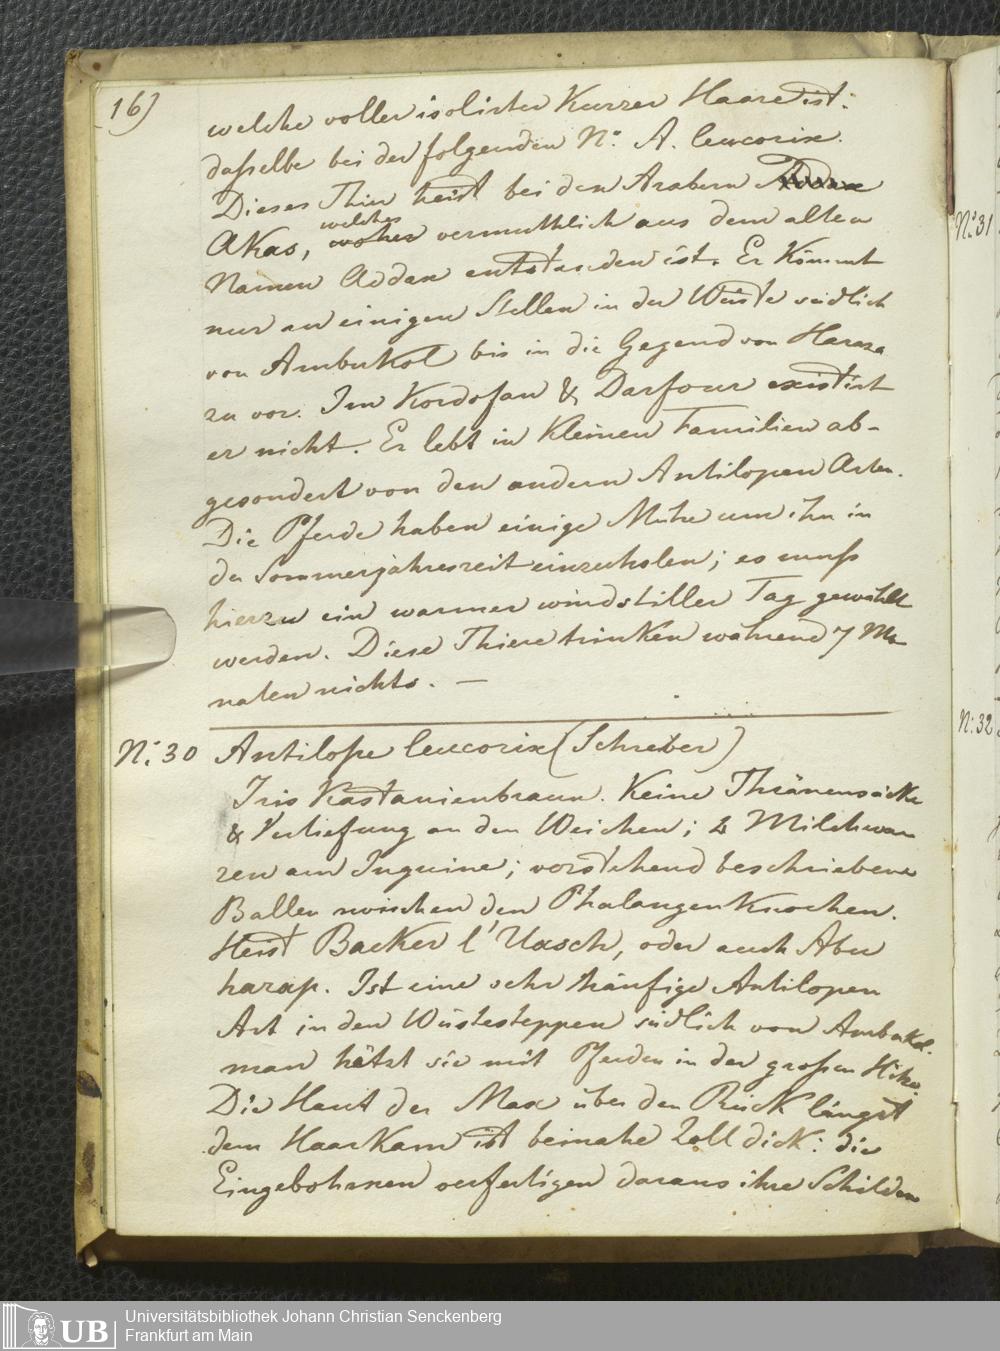 16)
welche voller isolirter Kurzer Haare ist.
dasselbe bei der folgenden N: A. leucorix.
Dieses Thier heist bei den Arabern
welches
Akas, woher vermuthlich aus dem alten
Namen Addax entstanden ist. Er Kömmt
nur an einigen Stellen in der Wüste südlich
von Ambukol bis in die Gegend von Haraza
zu vor. Im Kordofan & Darfour existirt
er nicht. Er lebt in Kleinen Familien ab-
gesondert von den andern Antilopen Arten.
Die Pferde haben einige Mühe um ihn in
der Sommerjahreszeit einzuholen; es muß
hierzu ein warmer windstiller Tag gewählt
werden. Diese Thiere trinken während 7 Mo
naten nichts. —
N: 30 Antilope leucorix (Schreber)
Iris Kastanienbraun. Keine Thränensäcke
& Vertiefung an den Weichen; 4 Milchwar
zen am Inguine; vorstehend beschriebene
Ballen zwischen den Phalangen Knochen.
Heist Backer l'Uasch, oder auch Abu
harap. Ist eine sehr häufige Antilopen
Art in den Wüstesteppen südlich von Ambukol.
man hätzt sie mit Pferden in der großen Hitze.
Die Haut der Max über den Rück längst
dem HaarKam ist beinahe Zoll dick: die
Eingebohrnen verfertigen daraus ihre Schilder
N: 31
N: 32
Universitätsbibliothek Johann Christian Senckenberg
Frankfurt am Main
UB